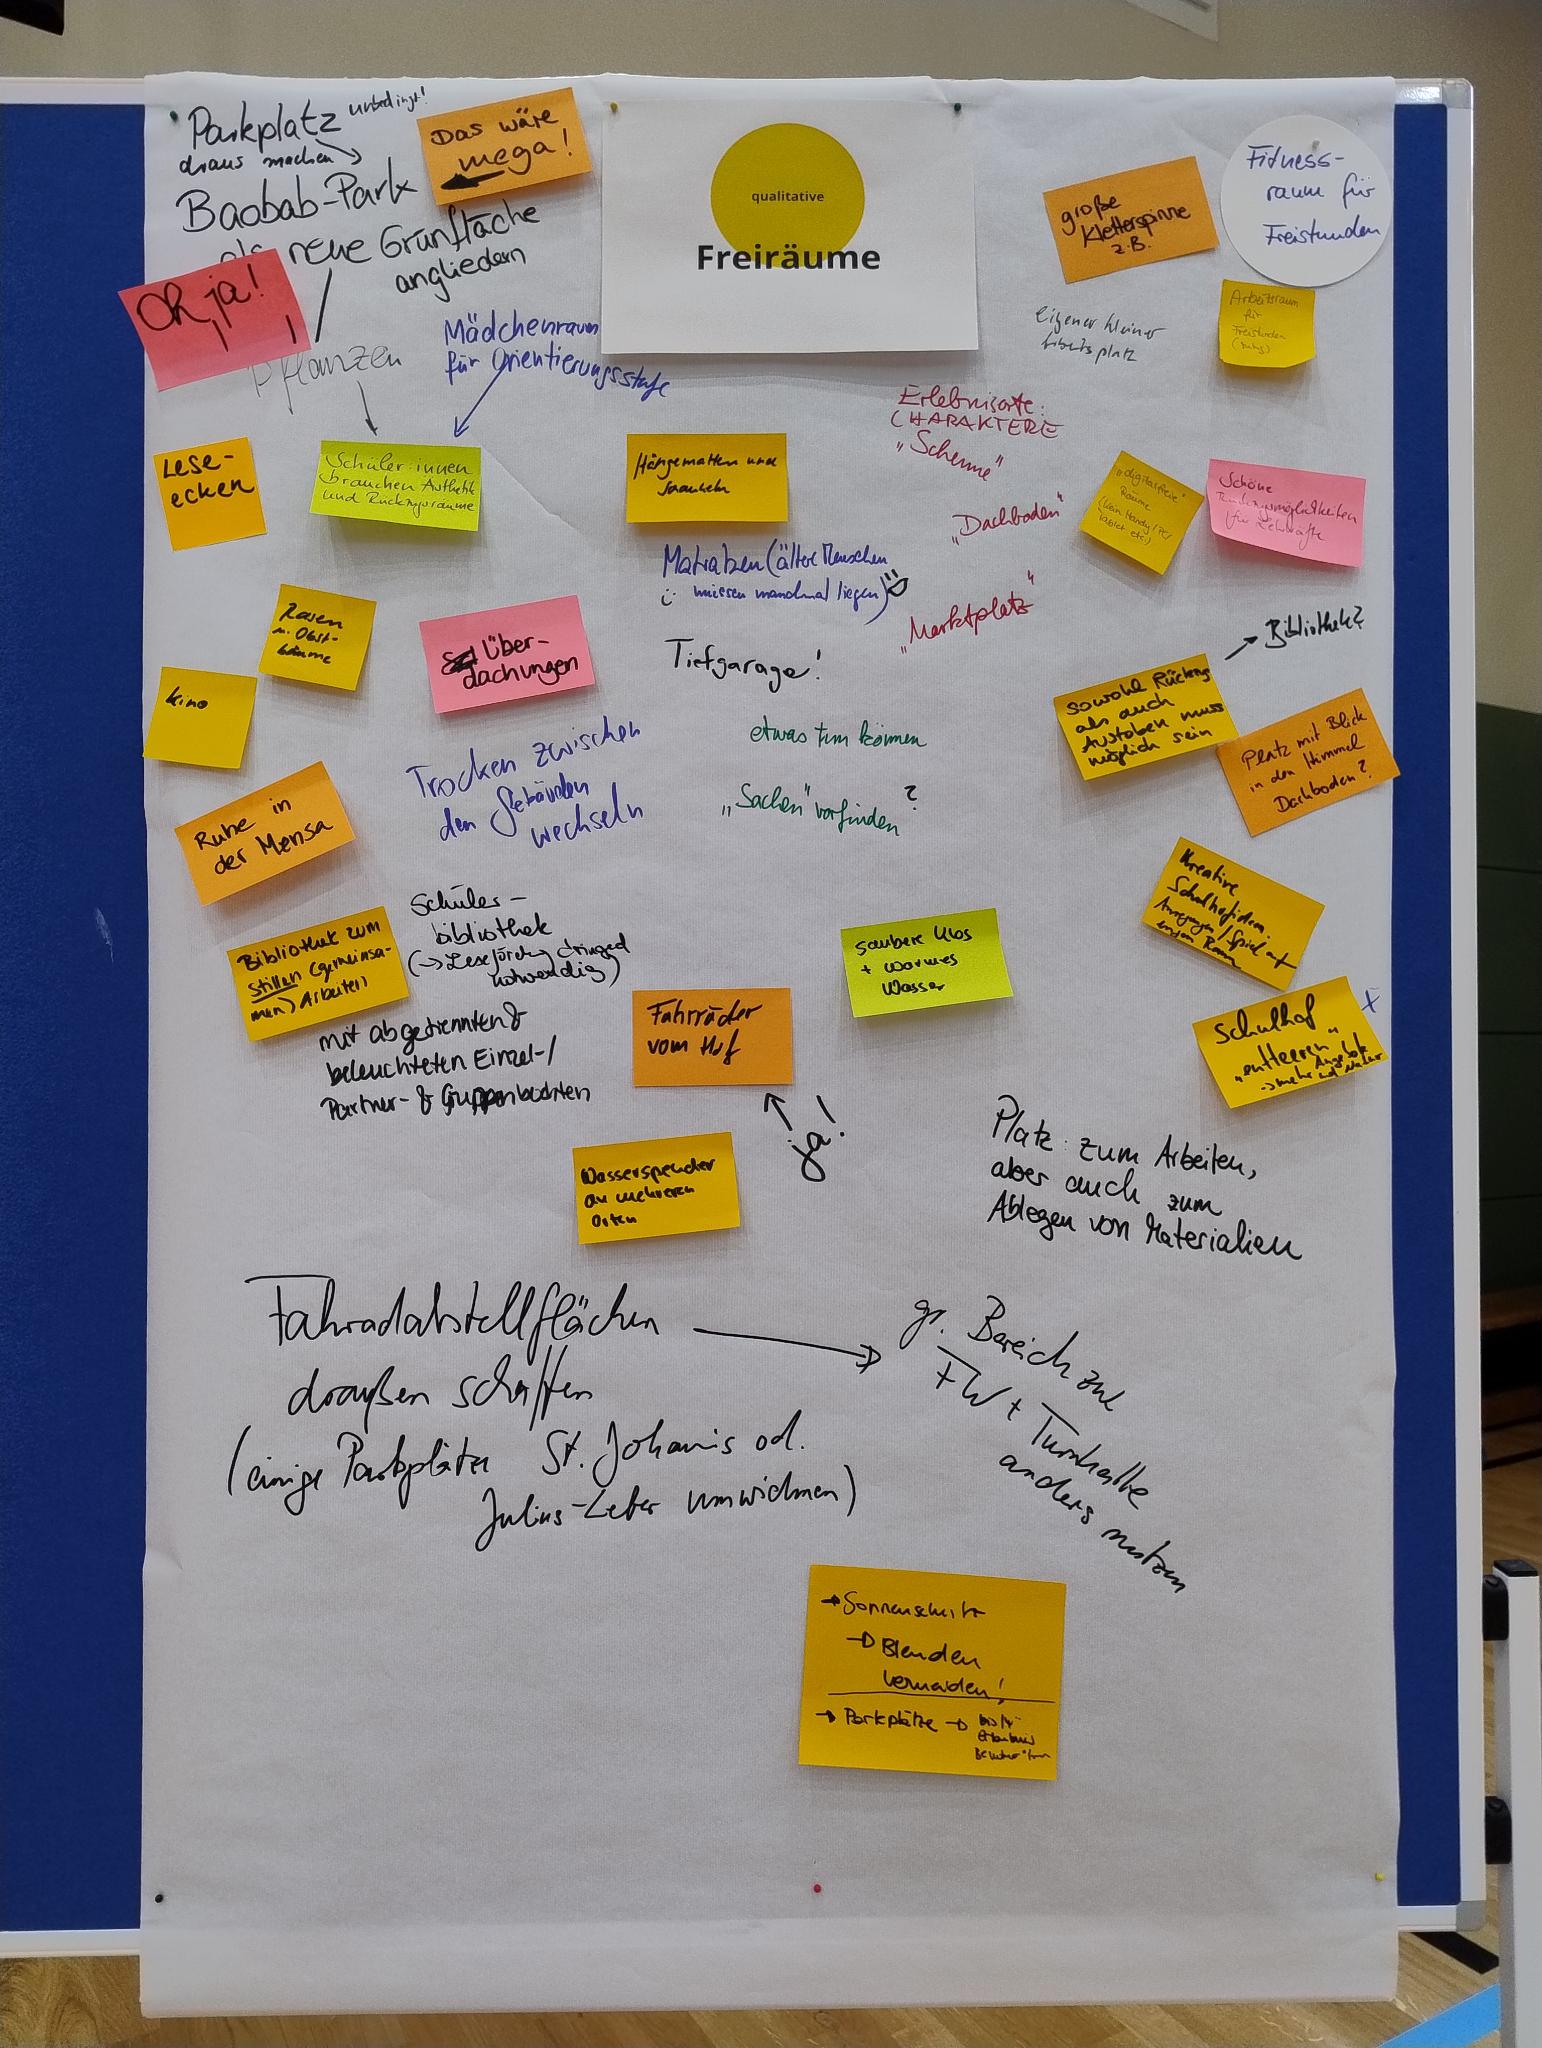 Parkplatz unbedingt!
draus machen
Baobab-Park
als neue Grünfläche
angliedern
Das wäre
mega!
Oh, ja!
Pflanzen
Mädchenraum
für Orientierungsstufe
qualitative
Freiräume
große
Kletterspinne
z.B.
Fitness-
raum für
Freistunden
eigener kleiner
Arbeitsplatz
Arbeitsraum
für
Freistunden
Lese-
ecken
Schüler:innen
brauchen Ästhetik
und Rückzugsräume
Hängematten und
Erlebnisorte:
CHARAKTERE
„Scheune"
„Dachboden"
„Marktplatz"
„digitalfreie"
Räume
(kein Handy/PC/
Tablet etc.)
Schöne
für Lehrkräfte
Matratzen (ältere Menschen
müssen manchmal liegen)
Rasen
u. Obst-
bäume
Über-
dachungen
Tiefgarage!
Bibliothek?
kino
sowohl Rückzug
als auch
Austoben muss
möglich sein
Platz mit Blick
in den Himmel
Dachboden?
Trocken zwischen
den Gebäuden
wechseln
etwas tun können
„Sachen" vorfinden?
Ruhe in
der Mensa
Kreative
Schulhofideen
Anregungen/Spiel auf
engem Raum
Bibliothek zum
stillen (gemeinsa-
men) Arbeiten
Schüler-
bibliothek
(→ Leseförd. dringend
notwendig)
mit abgetrennten &
beleuchteten Einzel-/
Partner- & Gruppenbuchten
saubere Klos
+ warmes
Wasser
Fahrräder
vom Hof
ja!
Schulhof
„entleeren"
→ mehr Angebote
+
Wasserspender
an mehreren
Orten
Platz zum Arbeiten,
aber auch zum
Ablegen von Materialien
Fahrradabstellflächen
draußen schaffen
(einige Parkplätze St. Johannis od.
Julius-Leber umwidmen)
gr. Bereich zw.
FW + Turnhalle
anders nutzen
→ Sonnenschutz
→ Blenden
vermeiden!
→ Parkplätze →